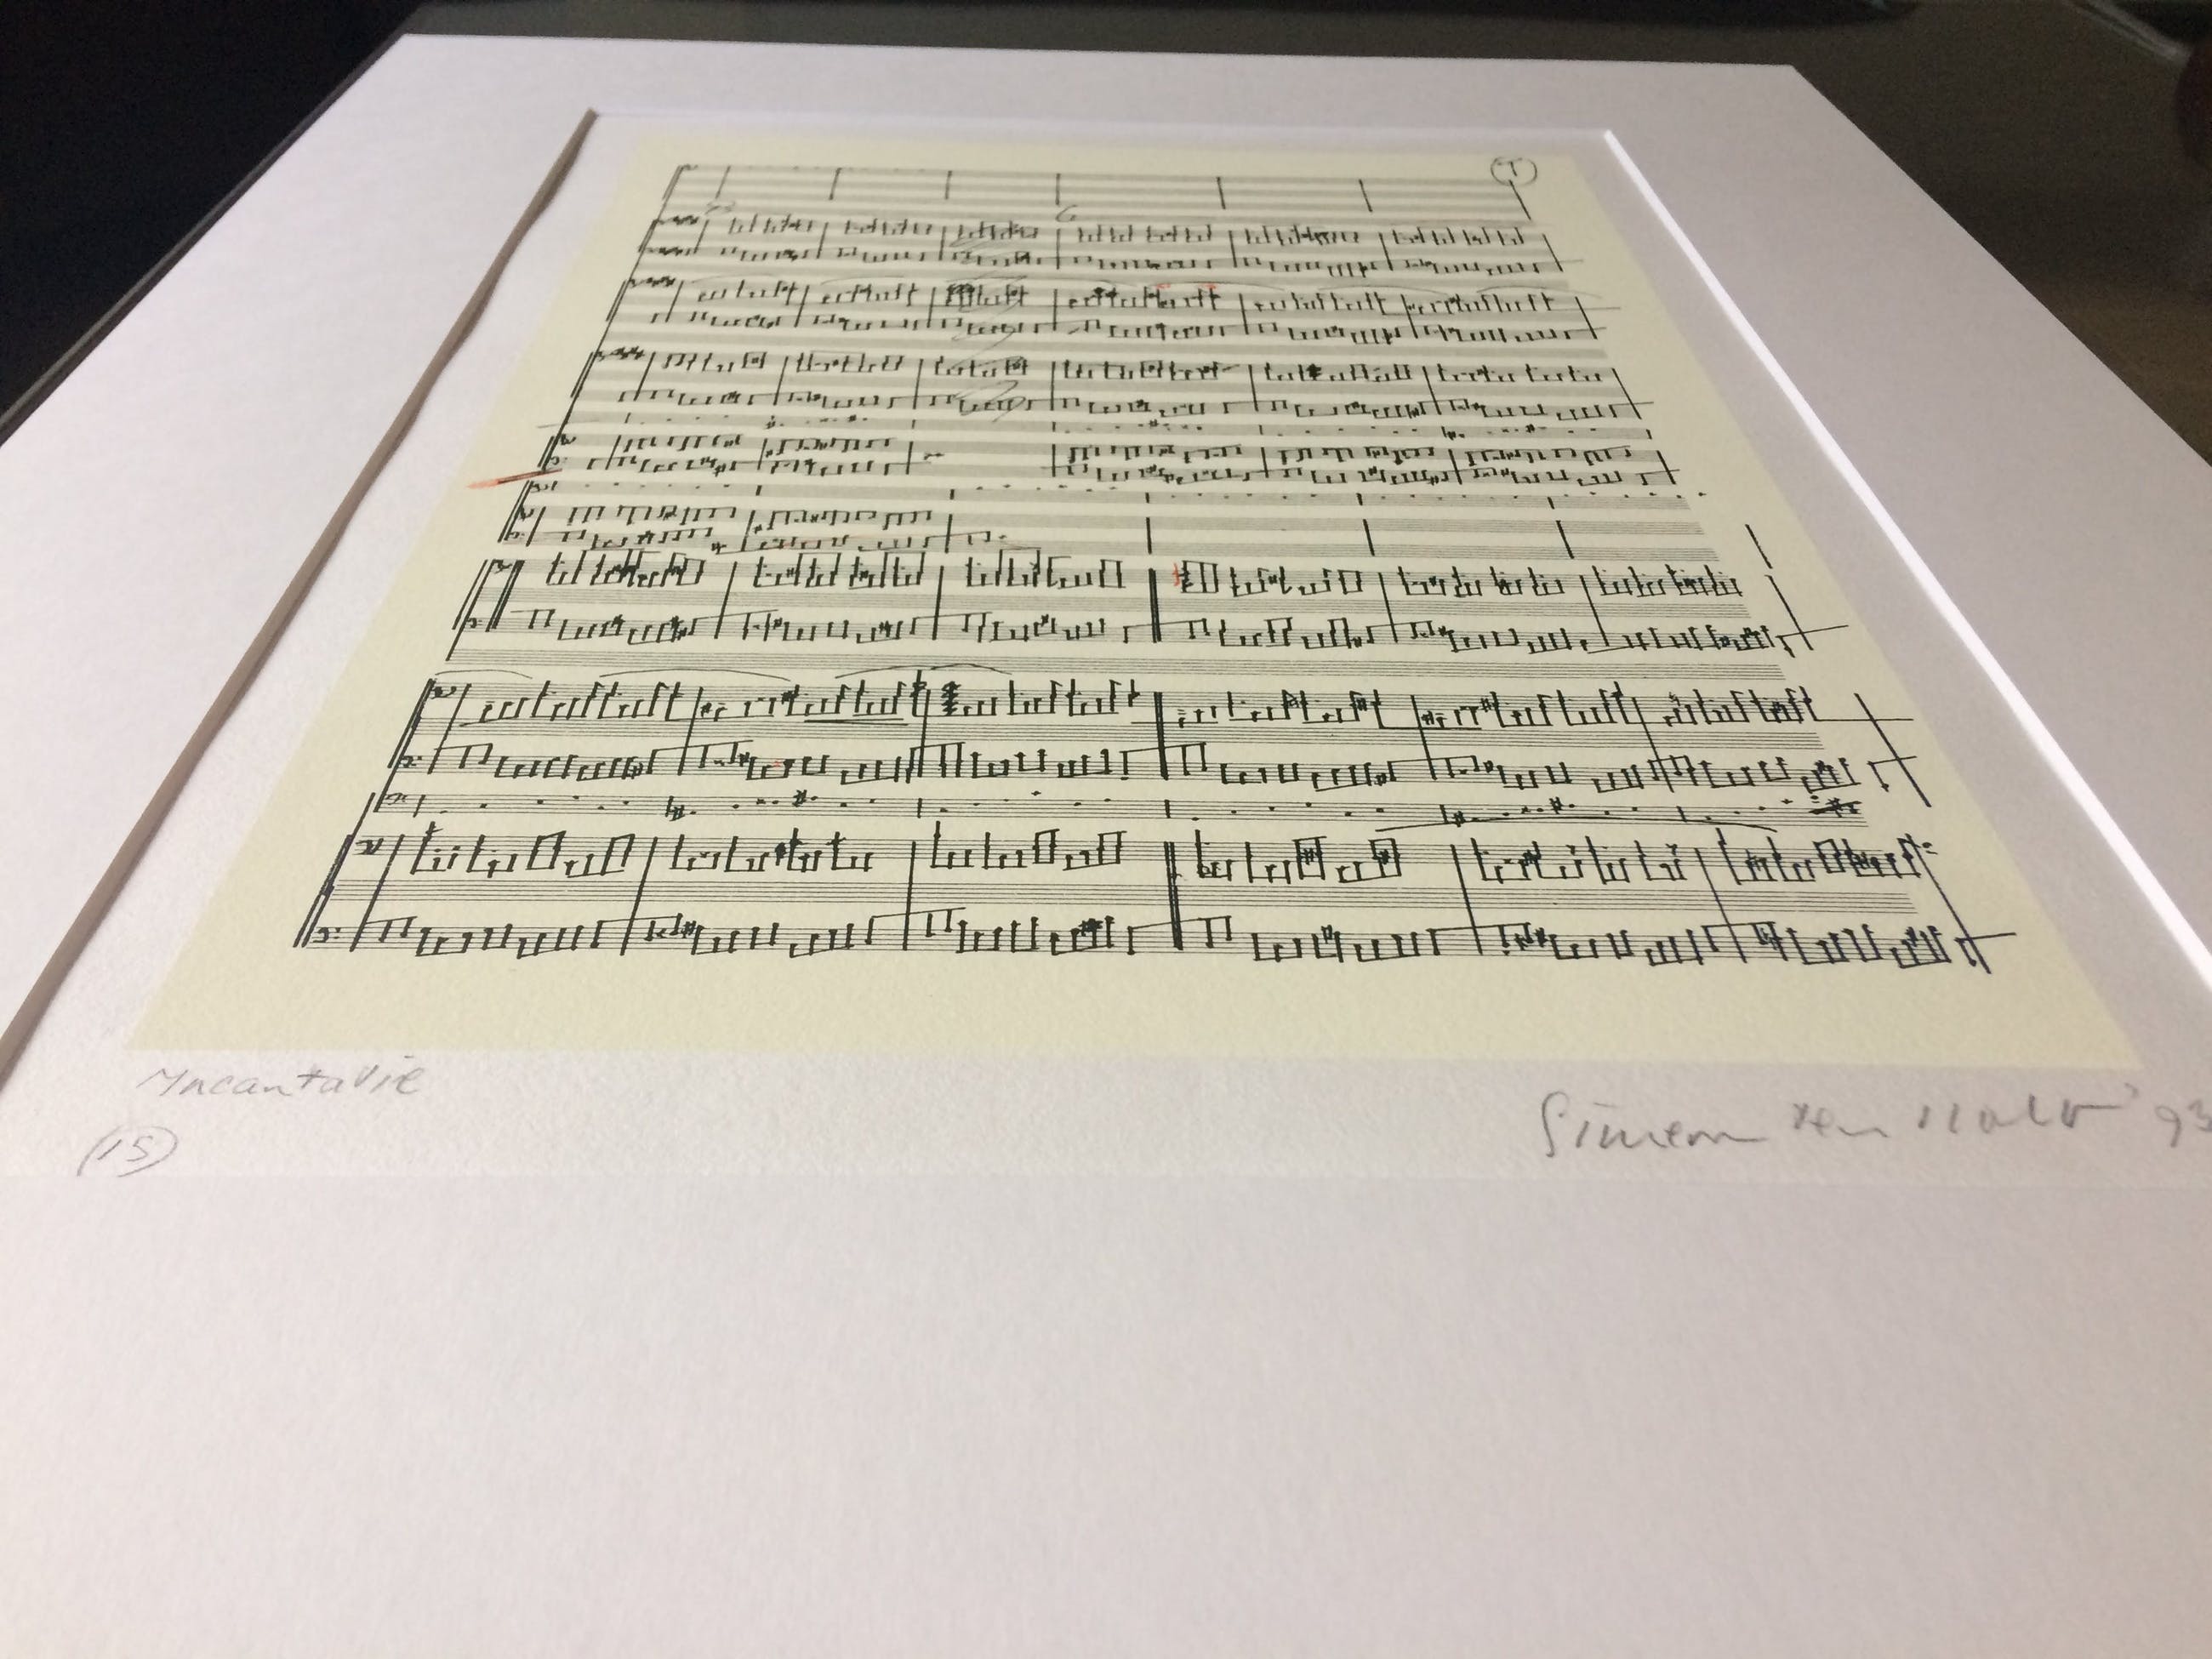 1
6
Incantatie
(15)
Simeon ten Holt '93